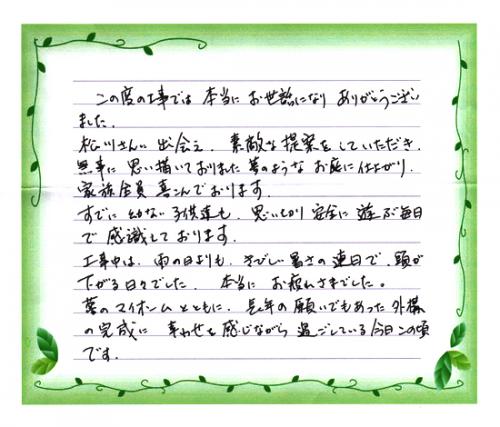 この度の工事では 本当に お世話になり ありがとうござい
ました。
松川さんに 出会え、素敵な提案をしていただき、
無事に 思い描いておりました 夢のような お庭に仕上がり、
家族全員 喜こんでおります。
すでに 幼ない子供達も、思いっきり 安全に 遊ぶ毎日
で 感謝しております。
工事中は、雨の日よりも、きびしい暑さの連日で、頭が
下がる日々でした。 本当に お疲れさまでした。
夢のマイホームとともに、長年の願いでもあった 外構
の完成に 幸わせを感じながら 過ごしている今日この頃
です。